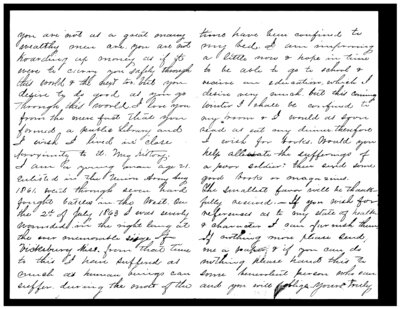 you are not as a great many
wealthy men are, you are not
hoarding up money as if it
were to carry you safely through
this world & the next too. But you
desire to do good as you go
through this world. I love you
from the mere first that you
formed, a Public Library and
I wish I lived in close
proximity to it. My history,
I am a young man age 21.
enlisted in the Union Army Aug
1861. went through seven hard
fought Battles in the West. On
the 2d of July 1863 I was severely
wounded in the right lung at
the ever memorable siege of
Vicksburg Miss. from that time
to this I have suffered as
much as human beings can
suffer during the most of the
time have been confined to
my bed. I am improving
a little now & hope in time
to be able to go to school &
receive an education, which I
desire very much, but this coming
winter I shall be confined to
my room & I would as soon
read as eat my dinner therefore
I wish for books. Would you
help alleviate the sufferings of
a poor soldier then send some
good books or magazines.
The smallest favor will be thank-
fully received. If you wish for
references as to my state of health
& character I can furnish them
If nothing more please send
me a paper, & if you can do
nothing please hand this to
some benevolent person who can
and you will oblige Yours Truly